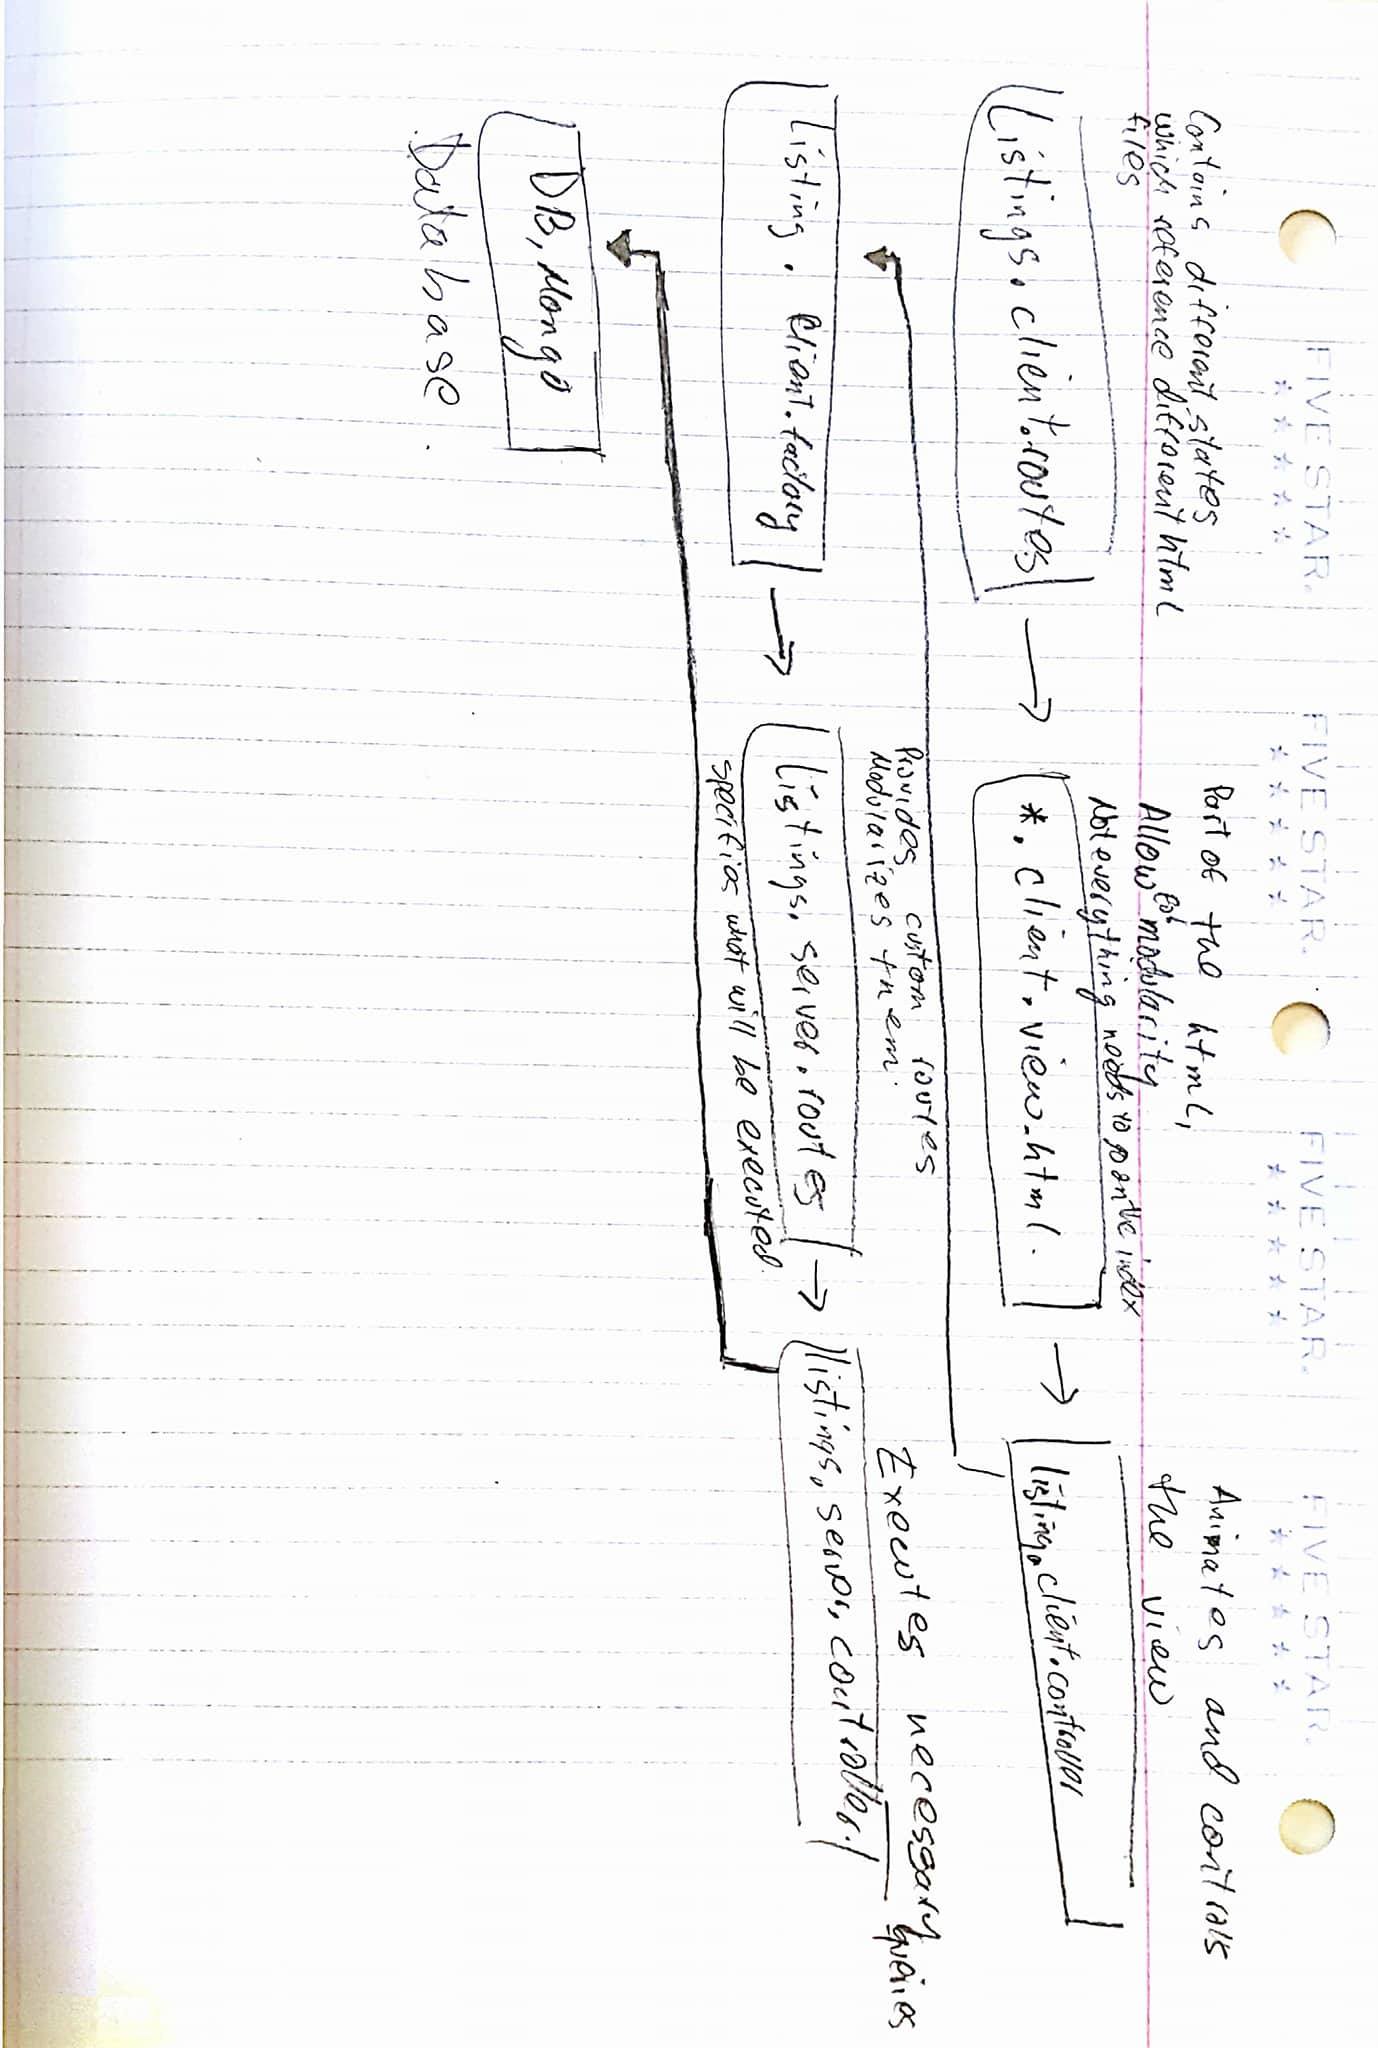 FIVE STAR. FIVE STAR. FIVE STAR. FIVE STAR.
Contains different states
which reference different html
files
Listings.client.routes
Part of the html,
Allow for modularity
Not everything needs to go on the index
*.client.view.html.
Animates and controls
the view
listing.client.controller
Listing. Client.factory
Provides custom routes
Modularizes them.
Listings. server. routes
specifies what will be executed.
Executes necessary
queries
listings. server. controller.
DB, Mongo
Database.